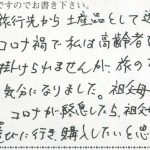 ですのでお書き下さい。
旅行先から土産品として送
コロナ禍で私は高齢者
掛けられませんが、旅の
気分になりました。祖父母
コロナが緊急したら、祖父母
に行き購入したいと思